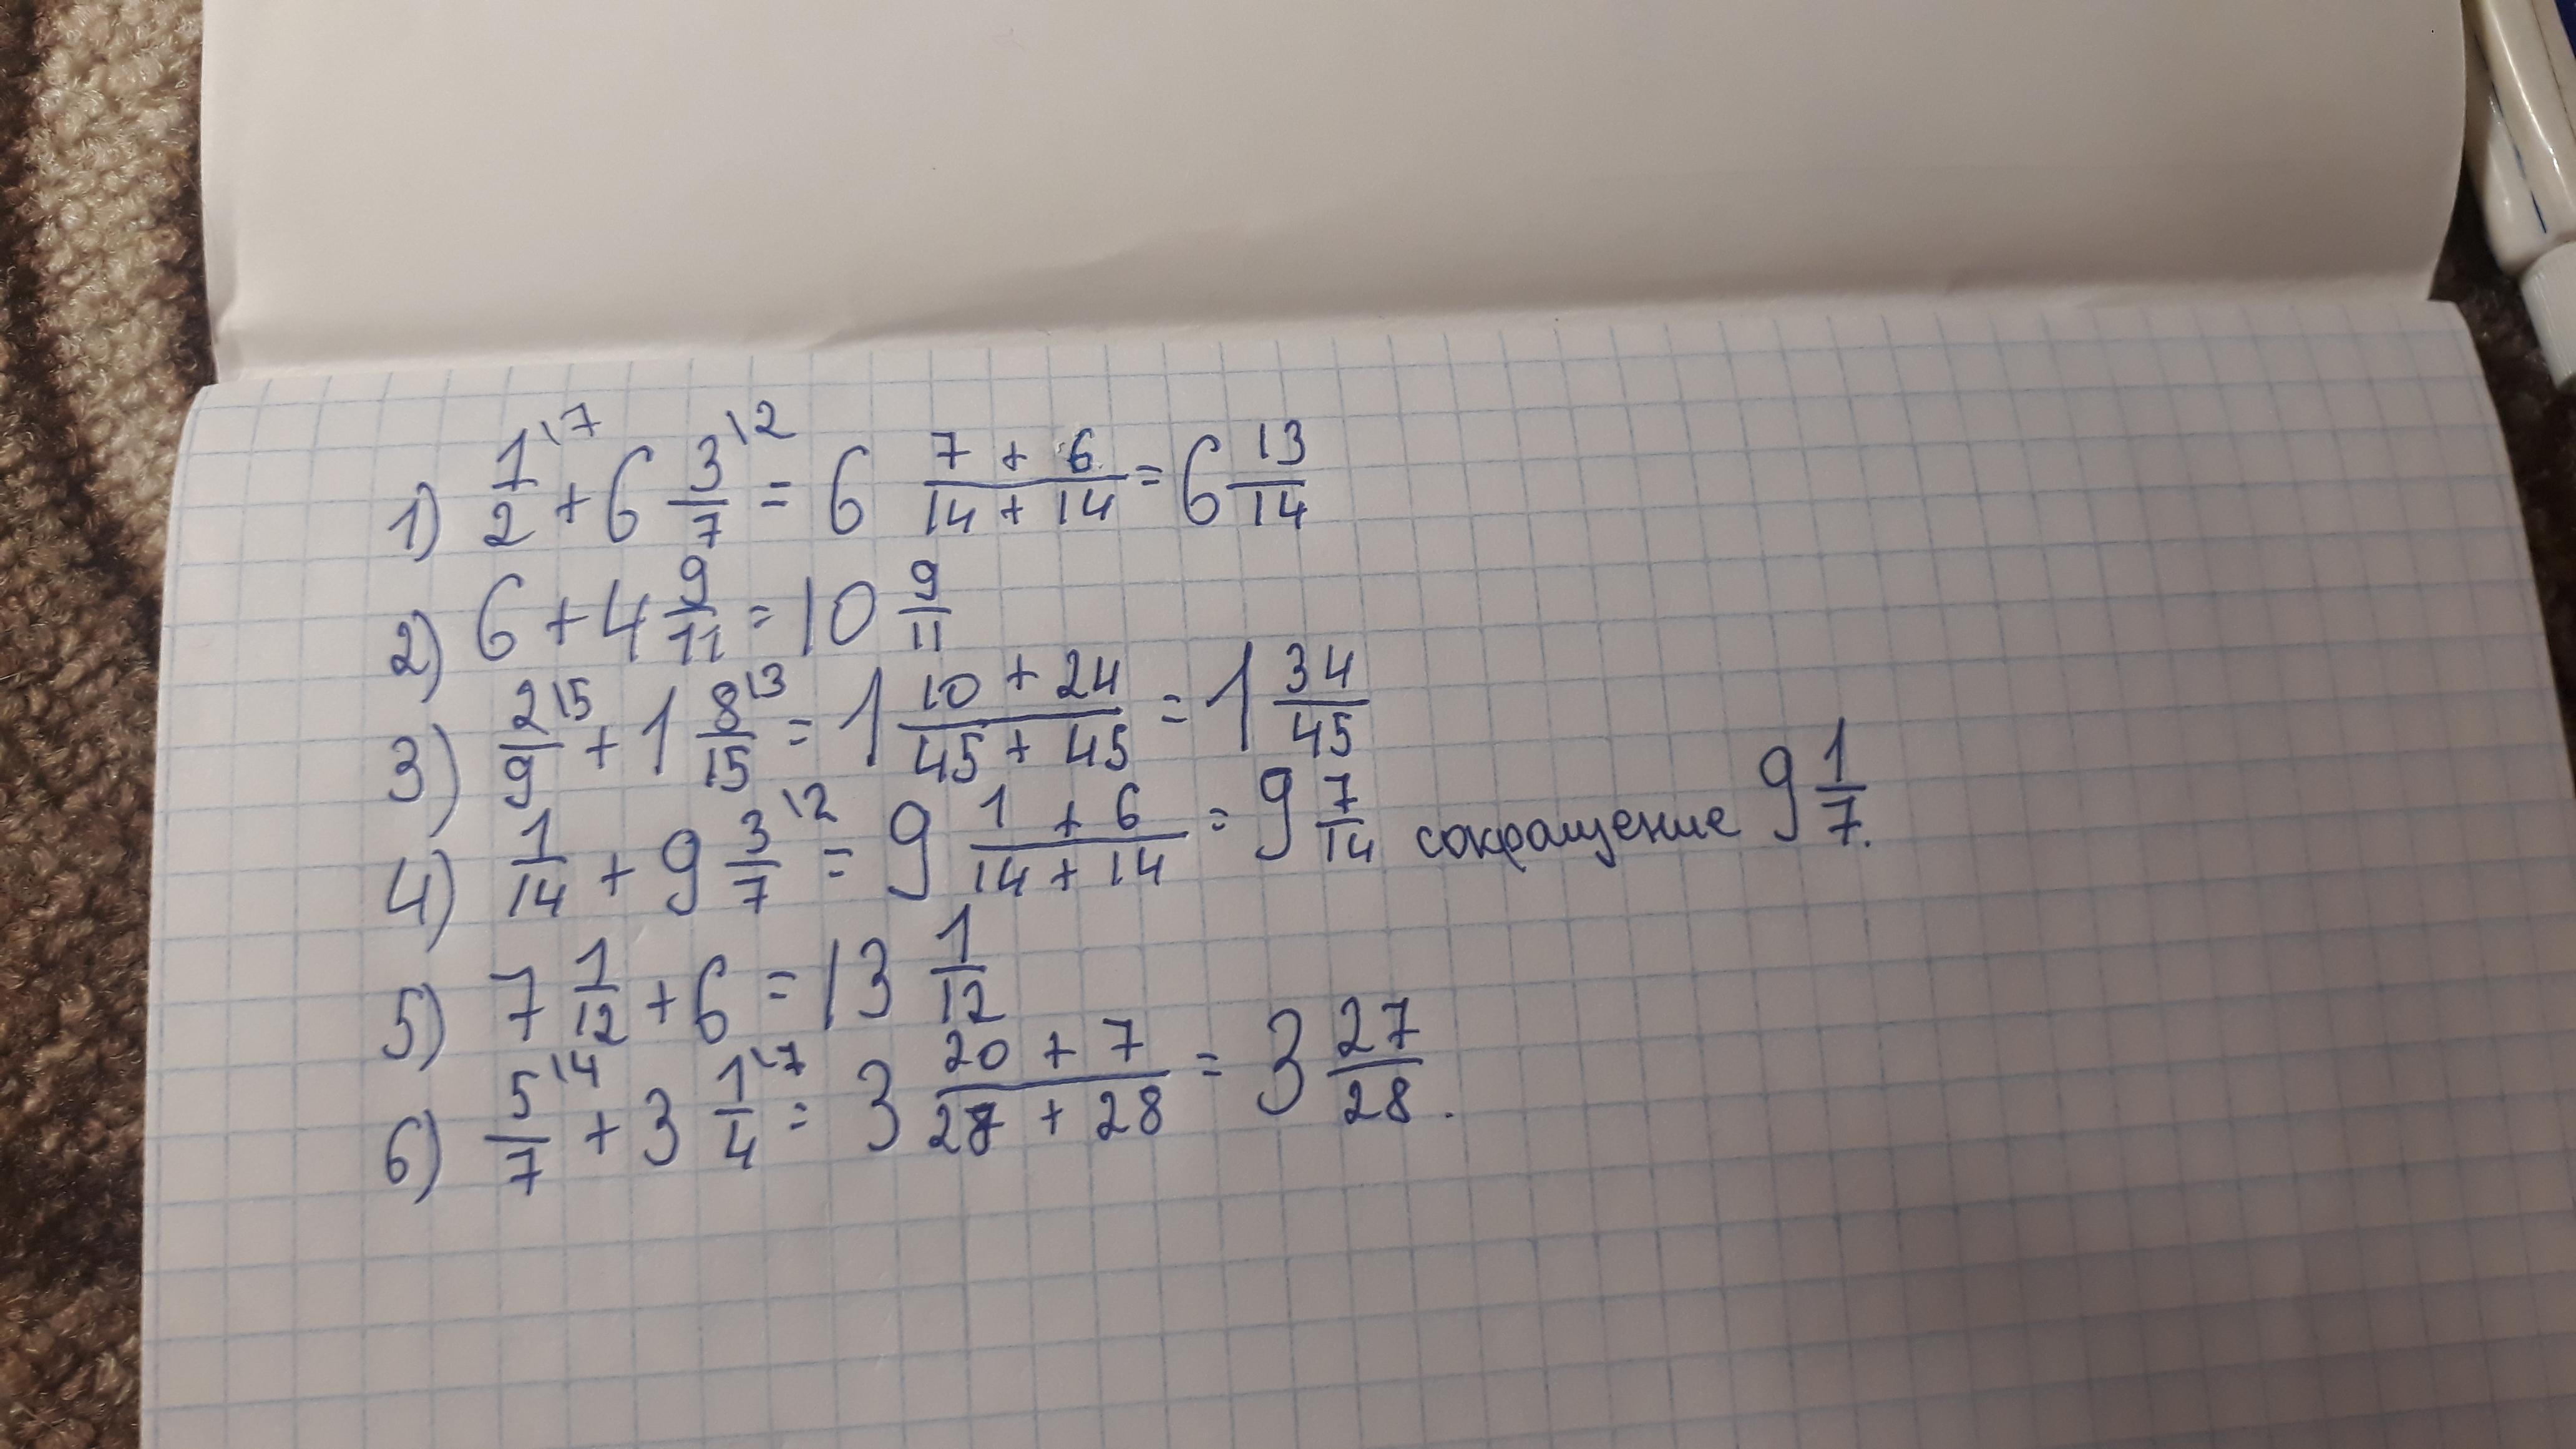 1) 1/2 \7 + 6 3/7 \2 = 6 (7 + 6)/(14 + 14) = 6 13/14
2) 6 + 4 9/11 = 10 9/11
3) 2/9 \5 + 1 8/15 \3 = 1 (10 + 24)/(45 + 45) = 1 34/45
4) 1/14 + 9 3/7 \2 = 9 (1 + 6)/(14 + 14) = 9 7/14 сокращение 9 1/7.
5) 7 1/12 + 6 = 13 1/12
6) 5/7 \4 + 3 1/4 \7 = 3 (20 + 7)/(28 + 28) = 3 27/28.